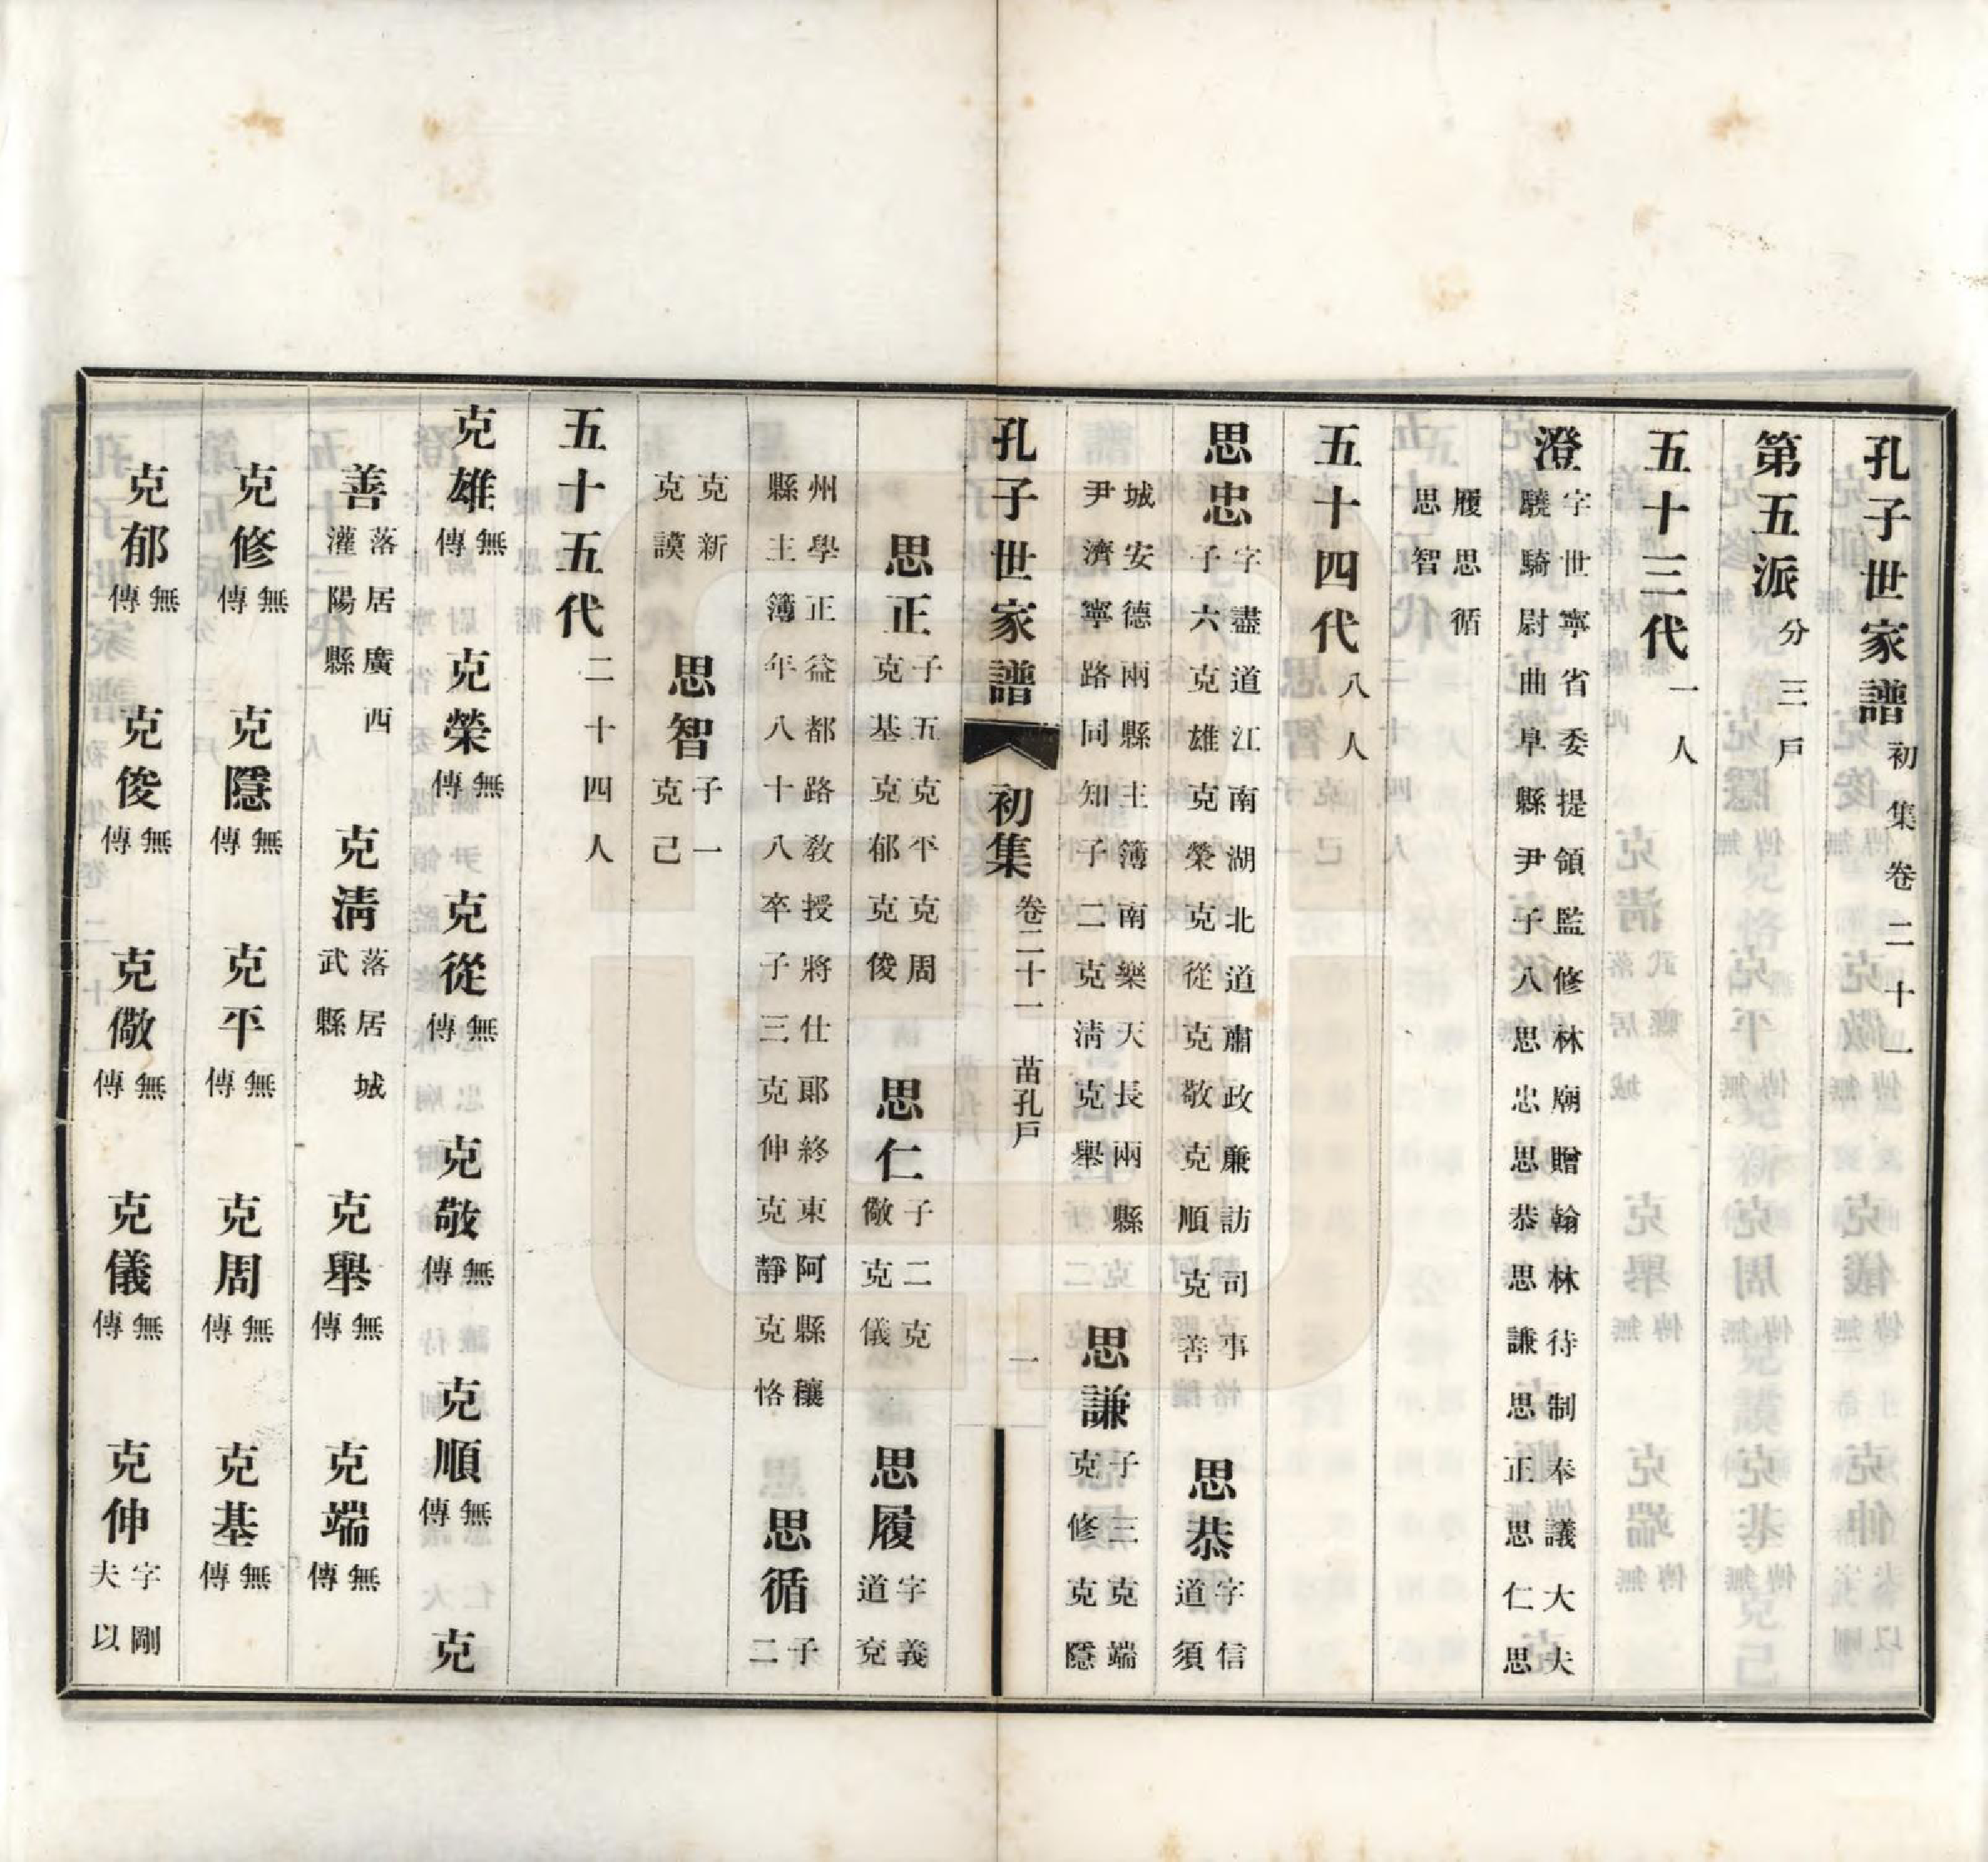 孔子世家譜初集卷二十一
第五派分三戶
五十三代一人
澄字世寧省委提領監修林廟贈翰林待制奉議大夫驍騎尉曲阜縣尹子八思忠思恭思謙思正思仁思
履思循思智
五十四代八人
思忠字盡道江南湖北道肅政廉訪司事子六克雄克榮克從克敬克順克善　思恭字信道須
城安德兩縣主簿南樂天長兩縣尹濟寧路同知子二克淸克舉　思謙子三克端克修克隱
孔子世家譜　初集　卷二十一　苗孔戶　一
思正子五克平克周克基克郁克俊　思仁子二克儆克儀　思履字義道兗
州學正益都路教授將仕郎終東阿縣穰縣主簿年八十八卒子三克伸克靜克恪　思循子二
克新克謨　思智子一克己
五十五代二十四人
克雄無傳　克榮無傳　克從無傳　克敬無傳　克順無傳　克
善落居廣西灌陽縣　克淸落居城武縣　克舉無傳　克端無傳
克修無傳　克隱無傳　克平無傳　克周無傳　克基無傳
克郁無傳　克俊無傳　克儆無傳　克儀無傳　克伸字剛夫以